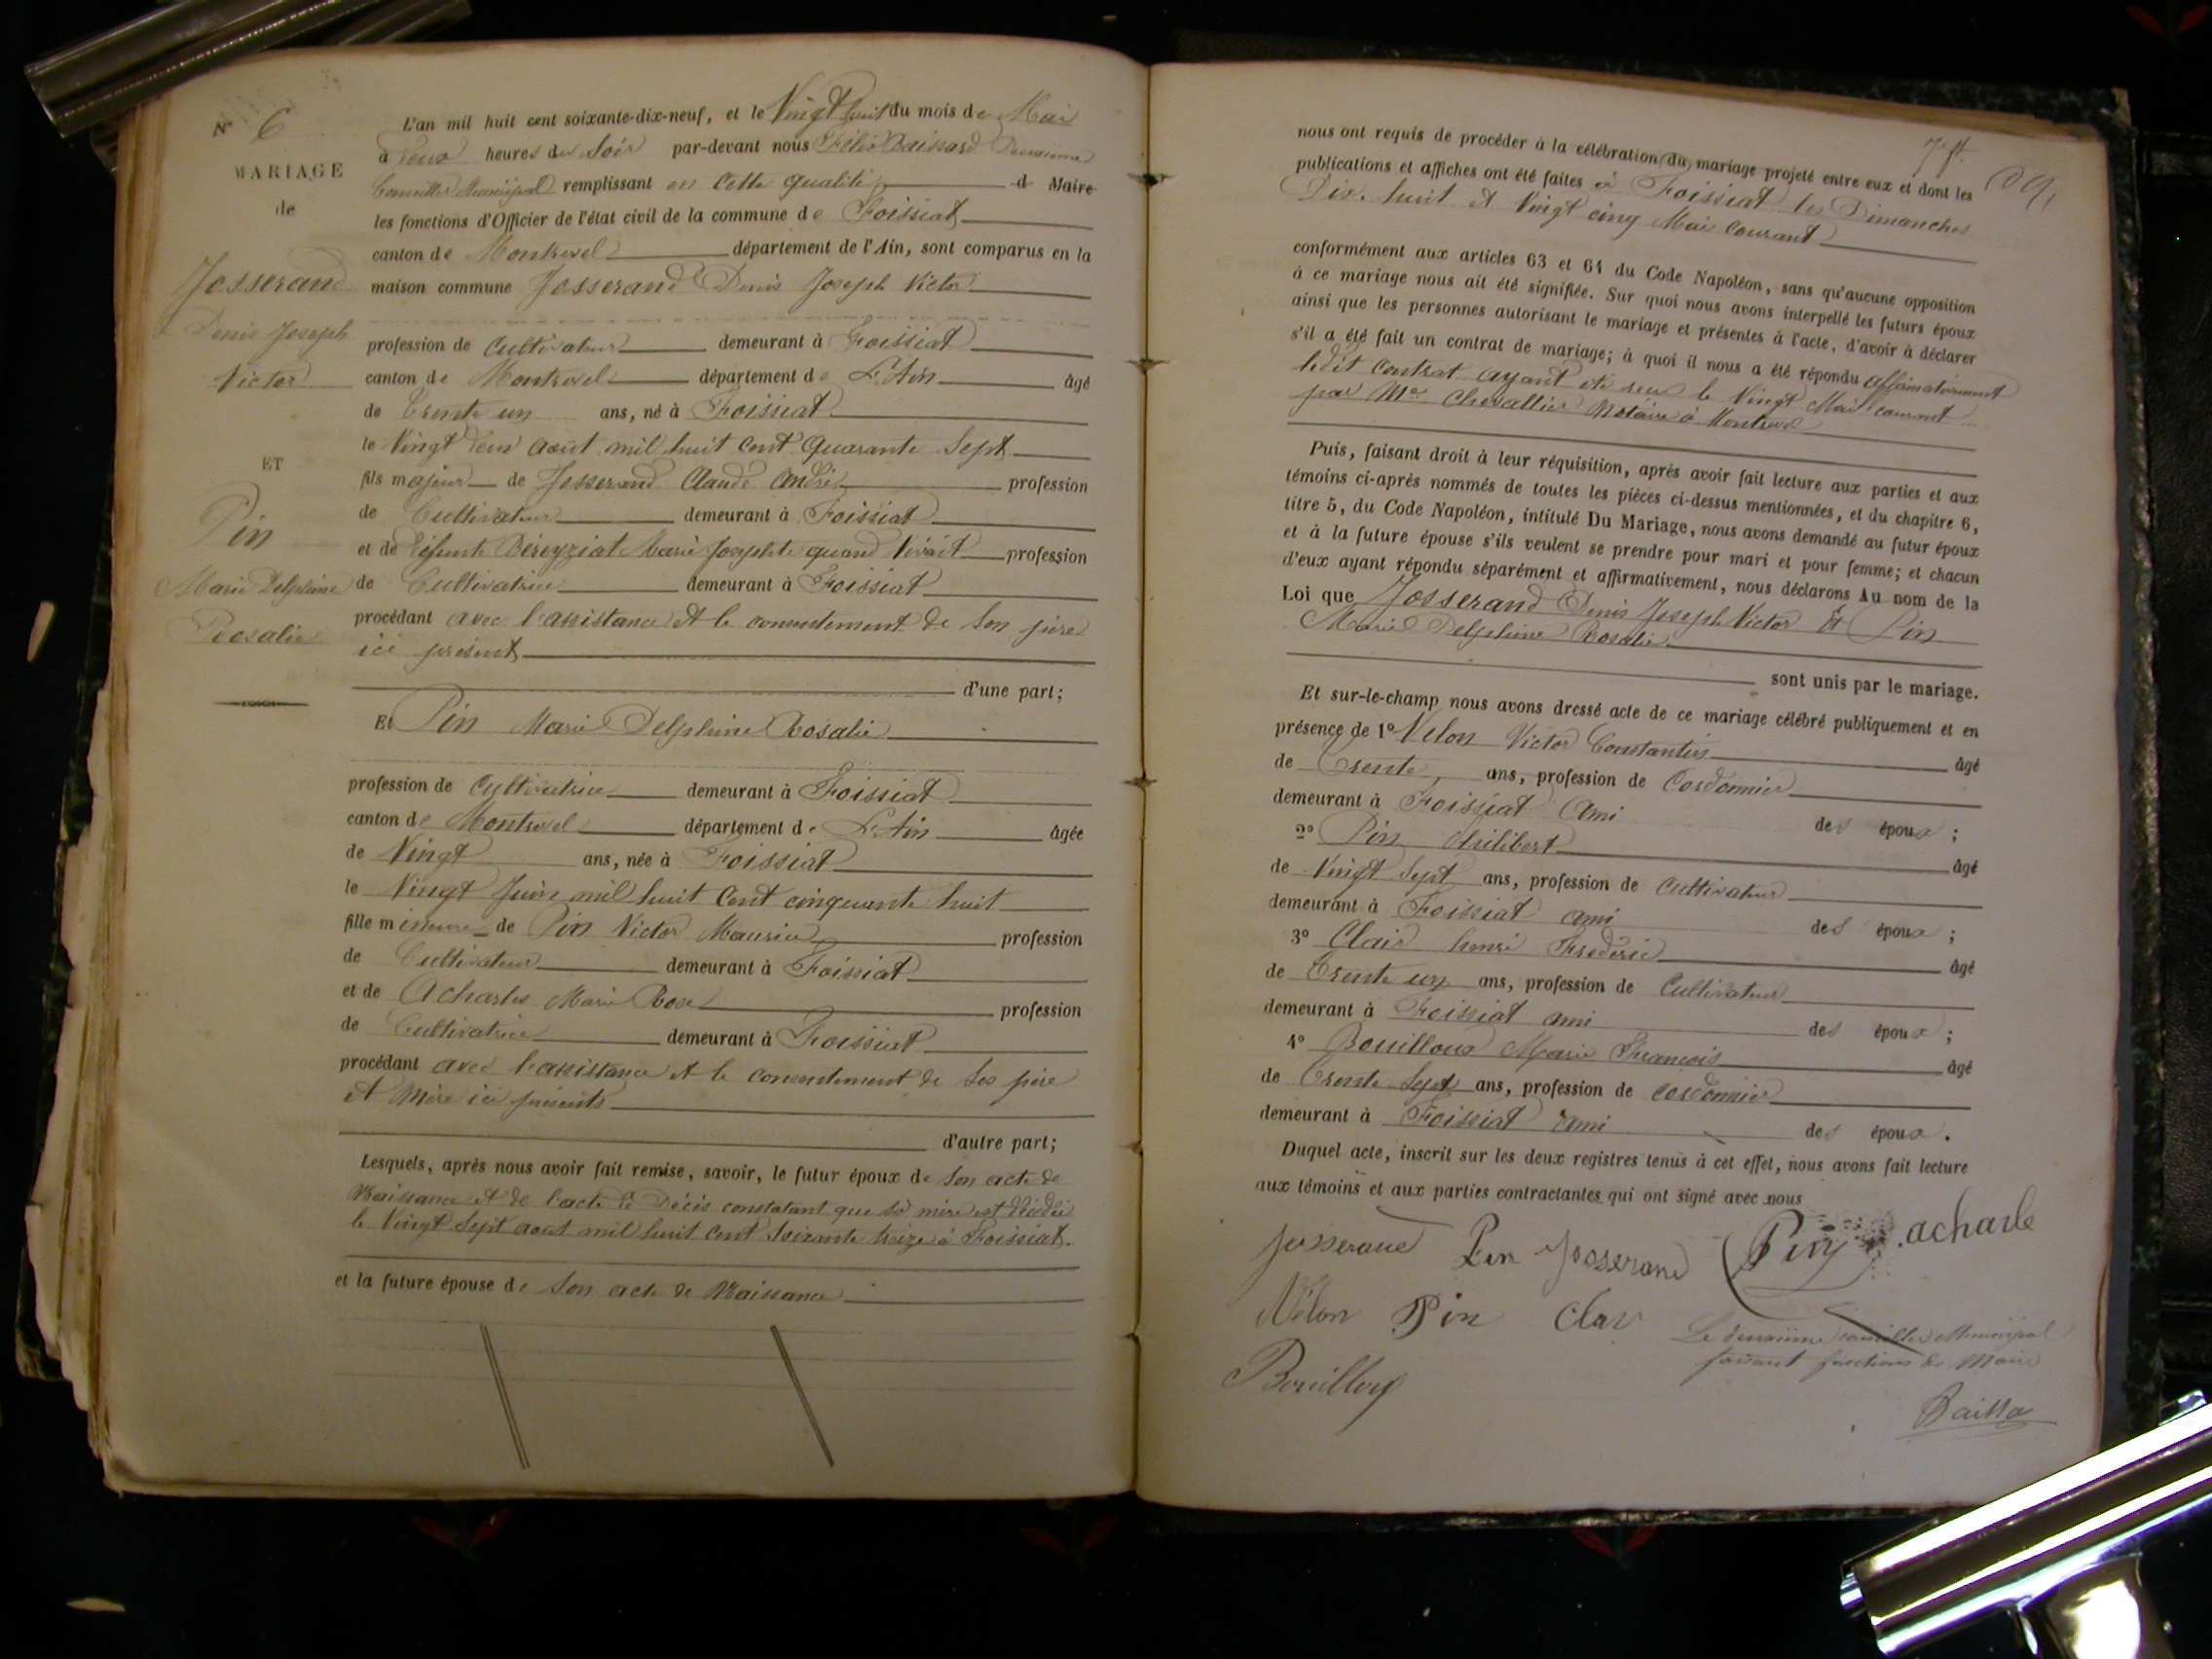 N° 6
MARIAGE
de
Josserand
Denis Joseph
Victor
ET
Pin
Marie Delphine
Rosalie
L'an mil huit cent soixante-dix-neuf, et le Vingt huit du mois de Mai
à deux heures du Soir par-devant nous Félix Baissard Deuxième
Conseiller Municipal remplissant en Cette qualité d Maire
les fonctions d'Officier de l'état civil de la commune de Foissiat
canton de Montrevel département de l'Ain, sont comparus en la
maison commune Josserand Denis Joseph Victor
profession de Cultivateur demeurant à Foissiat
canton de Montrevel département de L'Ain âgé
de Trente un ans, né à Foissiat
le Vingt deux août mil huit cent quarante Sept
fils majeur de Josserand Claude André profession
de Cultivateur demeurant à Foissiat
et de Défunte Béreyziat Marie Josephte quand Vivait profession
de Cultivatrice demeurant à Foissiat
procédant avec l'assistance et le consentement de Son père
ici présent
d'une part;
Et Pin Marie Delphine Rosalie
profession de Cultivatrice demeurant à Foissiat
canton de Montrevel département de L'Ain âgée
de Vingt ans, née à Foissiat
le Vingt Juin mil huit Cent cinquante huit
fille mineure de Pin Victor Maurice profession
de Cultivateur demeurant à Foissiat
et de Acharles Marie Rose profession
de Cultivatrice demeurant à Foissiat
procédant avec l'assistance et le consentement de Ses père
et Mère ici présents
d'autre part;
Lesquels, après nous avoir fait remise, savoir, le futur époux de Son acte de
Naissance et de l'acte de Décès constatant que Sa mère est décédée
le Vingt Sept août mil huit Cent Soixante treize à Foissiat.
et la future épouse de Son acte de Naissance
nous ont requis de procéder à la célébration du mariage projeté entre eux et dont les
publications et affiches ont été faites à Foissiat les Dimanches
Dix-huit et Vingt cinq Mai Courant
conformément aux articles 63 et 64 du Code Napoléon, sans qu'aucune opposition
à ce mariage nous ait été signifiée. Sur quoi nous avons interpellé les futurs époux
ainsi que les personnes autorisant le mariage et présentes à l'acte, d'avoir à déclarer
s'il a été fait un contrat de mariage; à quoi il nous a été répondu affirmativement
ledit Contrat ayant été reçu le Vingt Mai courant
par Me Chevallier Notaire à Montrevel
Puis, faisant droit à leur réquisition, après avoir fait lecture aux parties et aux
témoins ci-après nommés de toutes les pièces ci-dessus mentionnées, et du chapitre 6,
titre 5, du Code Napoléon, intitulé Du Mariage, nous avons demandé au futur époux
et à la future épouse s'ils veulent se prendre pour mari et pour femme; et chacun
d'eux ayant répondu séparément et affirmativement, nous déclarons Au nom de la
Loi que Josserand Denis Joseph Victor Et Pin
Marie Delphine Rosalie
sont unis par le mariage.
Et sur-le-champ nous avons dressé acte de ce mariage célébré publiquement et en
présence de 1° Velon Victor Constantin âgé
de Trente ans, profession de Cordonnier
demeurant à Foissiat Ami des époux ;
2° Pin Philibert âgé
de Vingt Sept ans, profession de Cultivateur
demeurant à Foissiat ami des époux ;
3° Clair henri Fréderic âgé
de Trente un ans, profession de Cultivateur
demeurant à Foissiat ami des époux ;
4° Bouilloux Marie François âgé
de Trente Sept ans, profession de cordonnier
demeurant à Foissiat ami des époux .
Duquel acte, inscrit sur les deux registres tenus à cet effet, nous avons fait lecture
aux témoins et aux parties contractantes qui ont signé avec nous
Josserand Pin Josserand Pin acharle
Vélon Pin Clair
Le deuxième conseiller Municipal
faisant fonctions de Maire
Bouilloux